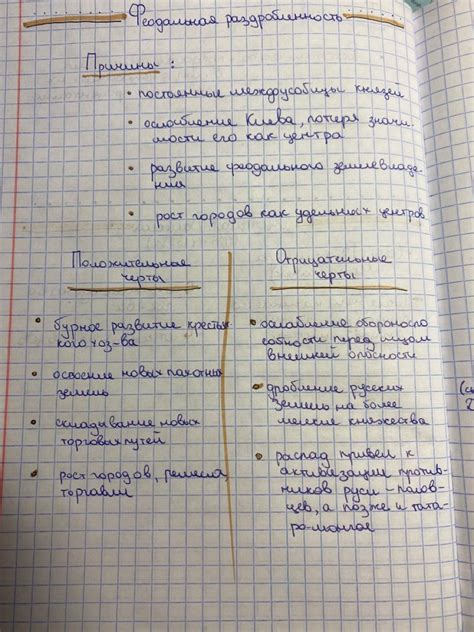 Феодальная раздробленность
Причины :
• постоянные междоусобицы князей
• ослабление Киева, потеря значи-
мости его как центра
• развитие феодального землевладе-
ния
• рост городов как удельных центров
Положительная
черты
• бурное развитие крестьян
кого хоз-ва
• освоение новых пахотных
земель
• складывание новых
торговых путей
• рост городов, ремесла,
торговли
Отрицательные
черты
• ослабление обороноспо
собности перед лицом
внешней опасности
• дробление русских
земель на более
мелкие княжества
• распад привел к
активизации против-
ников руси - полов-
цев, а позже и тата-
ро-монгол